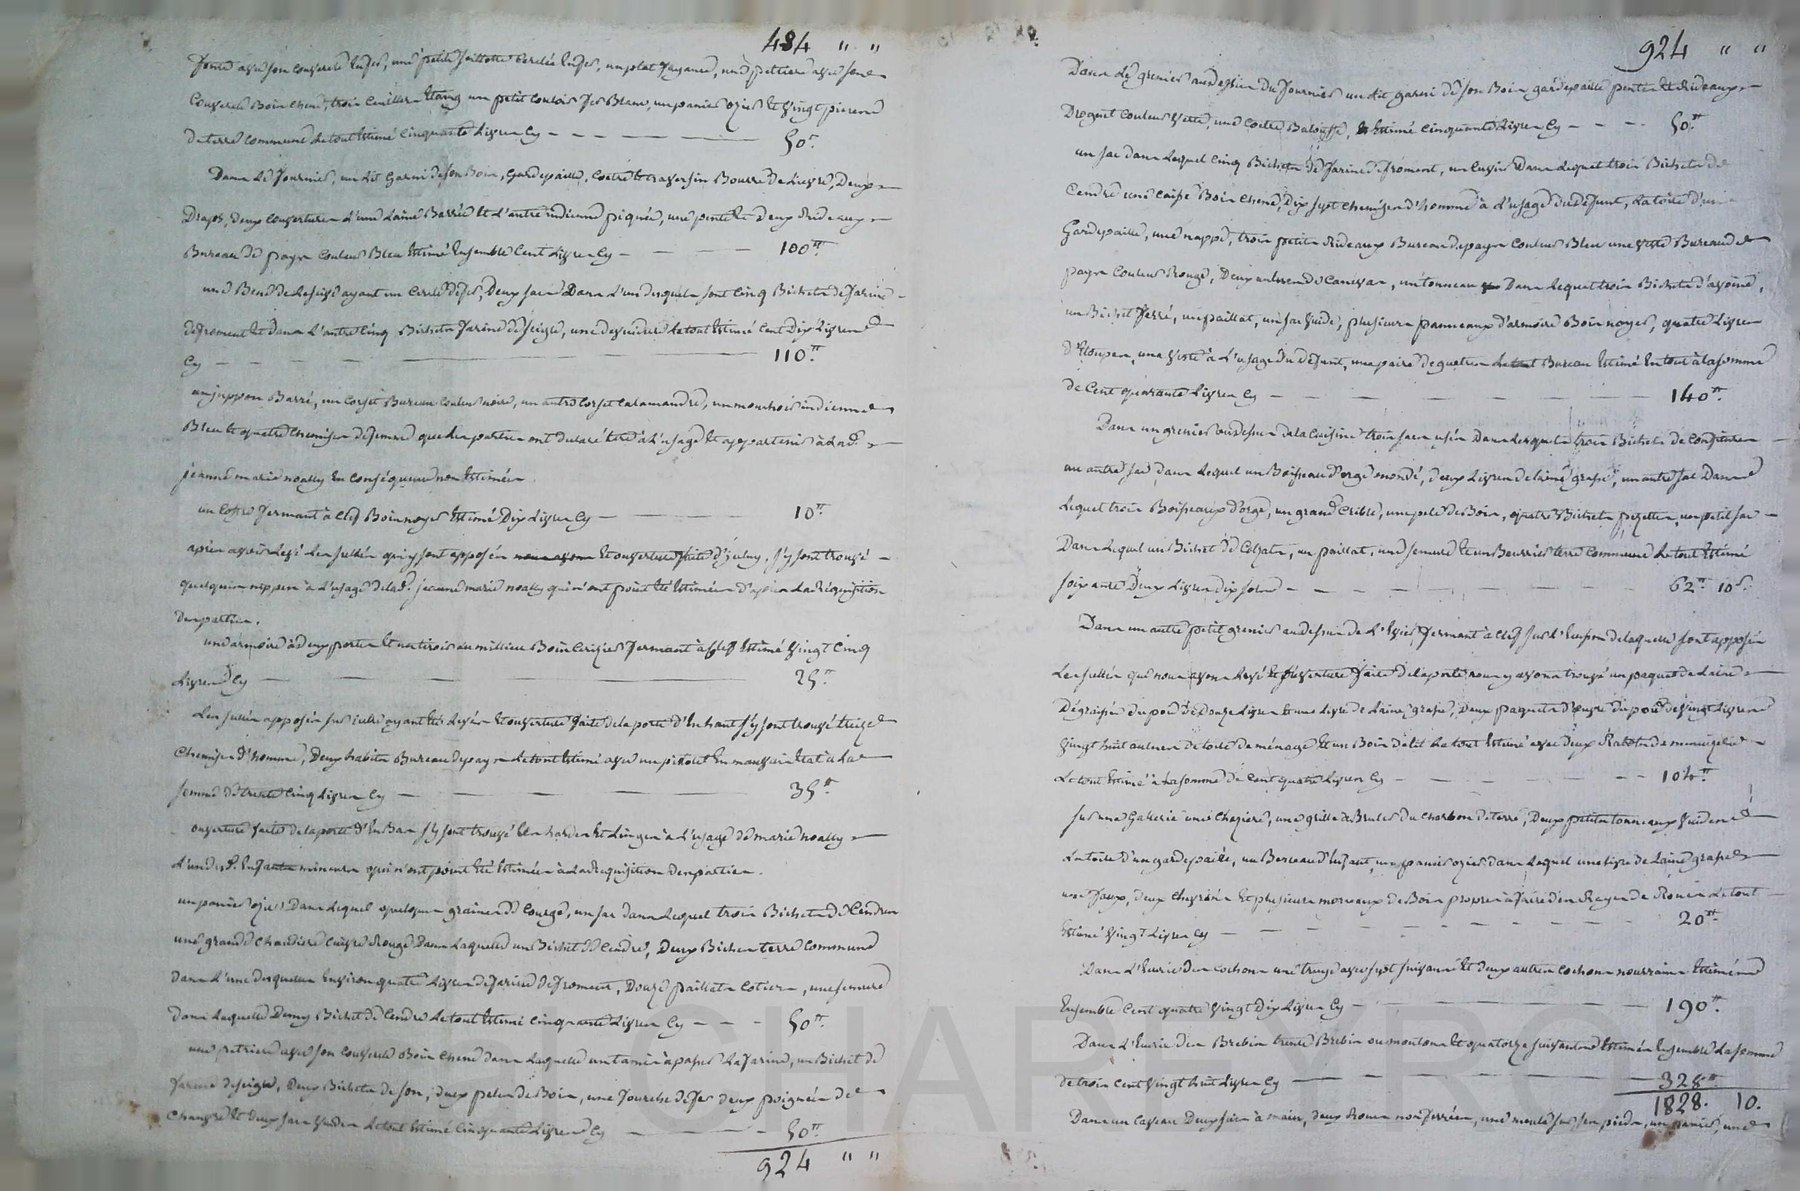 484 " "
fonte avec son couvercle de fer, une petite seillotte cerclée de fer, un plat fayance, une pettriere avec son
couvercle Bois chene, trois cuilliers Etaing un petit couloir fer Blanc, un panier ozier et vingt pieces
de terre commune Le tout Estimé Cinquante Livres Cy - - - - - 50#.
Dans Le fournier, un Lit Garni de son Bois, Gardepaille, Coetre et traversin Bourre de Lievre, Deux
Draps, deux couvertures L'une Laine Barrée et L'autre indienne piquée, une pente et Deux Rideaux
Bureau de pays couleur Bleu Estimé Ensemble Cent Livres Cy - - - 100#.
une Benne de Lessive ayant un cercle de fer, Deux sacs Dans L'un desquels sont Cinq Bichets de farine
de froment Et Dans L'autre Cinq Bichets farine de seigle, une devidoire Le tout Estimé Cent Dix Livres
Cy - - - 110#.
un juppon Barré, un corset Bureau couleur noire, un autre corset calamandre, un mouchoir indienne
Bleu et quatre chemises de femme que les parties ont declaré Etre à L'usage et appartenir à Lad.
jeanne marie noally En conséquence non Estimées.
un Coffre fermant à clef Bois noyer Estimé Dix Livres Cy - - - 10#.
après avoir Levé Les scellés qui y sont apposés et ouverture faite d'iceluy, s'y sont trouvé
quelques nippes à L'usage de Lad. jeanne marie noally qui n'ont point Eté Estimées D'après La Réquisition
des parties.
une armoire à deux portes Et un tiroir au millieu Bois Cerizier fermant à clef Estimé Vingt Cinq
Livres Cy - - - 25#.
Les scellés apposés sur icelle ayant Eté Levés Et ouverture faite de la porte d'En haut s'y sont trouvé treize
chemises d'homme, Deux habits Bureau de pays Le tout Estimé avec un pistolet En mauvais Etat à La
somme de trente Cinq Livres Cy - - - 35#.
ouverture faite de la porte d'En Bas s'y sont trouvé Les hardes Et Linges à L'usage de marie noally
L'une d. Enfants mineurs qui n'ont point Eté Estimées à La Requisition des parties.
un panier ozier Dans Lequel quelques graines de Courge, un sac dans Lequel trois Bichets de Cendres
une grande chaudiere cuivre Rouge Dans Laquelle un Bichet de Cendre, Deux Biches terre commune
Dans L'une desquelles Environ quatre Livres de farine de froment, Douze paillats, une
Dans Laquelle Demy Bichet de Cendre Le tout Estimé Cinquante Livres Cy - - - 50#.
une petriere avec son couvercle Bois chene dans Laquelle un tamis à passer La farine, un Bichet de
farine de seigle, Deux Bichets de son, deux peles de Bois, une fourche de fer deux poignées de
chanvre et deux sacs vuides Le tout Estimé Cinquante Livres Cy - - - 50#.
924 " "
924 " "
Dans Le grenier au dessus du fournier un Lit garni de son Bois gardepaille pente et Rideaux
Droguet couleur verte, une Coetre Balouffe, Estimé Cinquante Livres Cy - - - 50#.
un sac dans Lequel Cinq Bichets de farine de froment, un cuvier Dans Lequel trois Bichets de
Cendre une Caisse Bois chene, Dix sept chemises d'homme à L'usage du Defunt, La toile d'un
Gardepaille, une nappe, trois petits Rideaux Bureau de pays couleur Bleu une veste Bureau de
pays couleur Rouge, Deux autres de Canevas, un tonneau Dans Lequel trois Bichets d'avoine,
un Bichet ferré, un paillat, un sac vuide, plusieurs panneaux d'armoire Bois noyer, quatre Livres
d'Etoupes, une veste à L'usage du Défunt, une paire de guetres Bureau Estimé En tout à la somme
de Cent quarante Livres Cy - - - 140#.
Dans un grenier au dessus de la Cuisine trois sacs usés Dans Lesquels trois Bichets de
un autre sac dans Lequel un Boisseau d'orge mondé, deux Livres de Laine grasse, un autre sac Dans
Lequel trois Boisseaux d'orge, un grand crible, une pele de Bois, quatre Bichets pezettes, un petit sac
Dans Lequel un Bichet de Colzats, un paillat, une Et un Beurrier terre Commune Le tout Estimé
soixante Deux Livres dix sols - - - 62# 10s.
Dans un autre petit grenier au dessus de L'Evier fermant à clef sur L'Entrée de laquelle sont apposés
Les scellés que nous avons Levé Et ouverture faite de la porte nous y avons trouvé un paquet de Laine
Dégraissée du poid de Douze Livres Et une Livre de Laine grasse, Deux paquets d'œuvre du poid de vingt Livres
vingt huit aulnes de toile de ménage Et un Bois de Lit Le tout Estimé avec deux Rabots de menuizerie
Le tout Estimé à La somme de Cent quatre Livres Cy - - - 104#.
sur une Galerie une Cheziere, une grille à Bruler du charbon de terre, Deux petits tonneaux vuides
La toile d'un gardepaille, un Berceau d'Enfant, un panier ozier dans Lequel une Livre de Laine grasse
une faux, deux chevrons Et plusieurs morceaux de Bois propres à faire des Rayes de Roues Le tout
Estimé vingt Livres Cy - - - 20#.
Dans L'Ecurie des cochons une truye avec sept suivants Et deux autres cochons nourrains Estimés
Ensemble Cent quatre Vingt Dix Livres Cy - - - 190#.
Dans L'Ecurie des Brebis trente Brebis ou moutons Et quatorze suivants Estimés Ensemble La somme
de trois Cent vingt huit Livres Cy - - - 328#
1828. 10.
Dans un caveau Deux scies à main, deux Roues non ferrées, une meule sur son pied, un panier, une
CHARTYRO